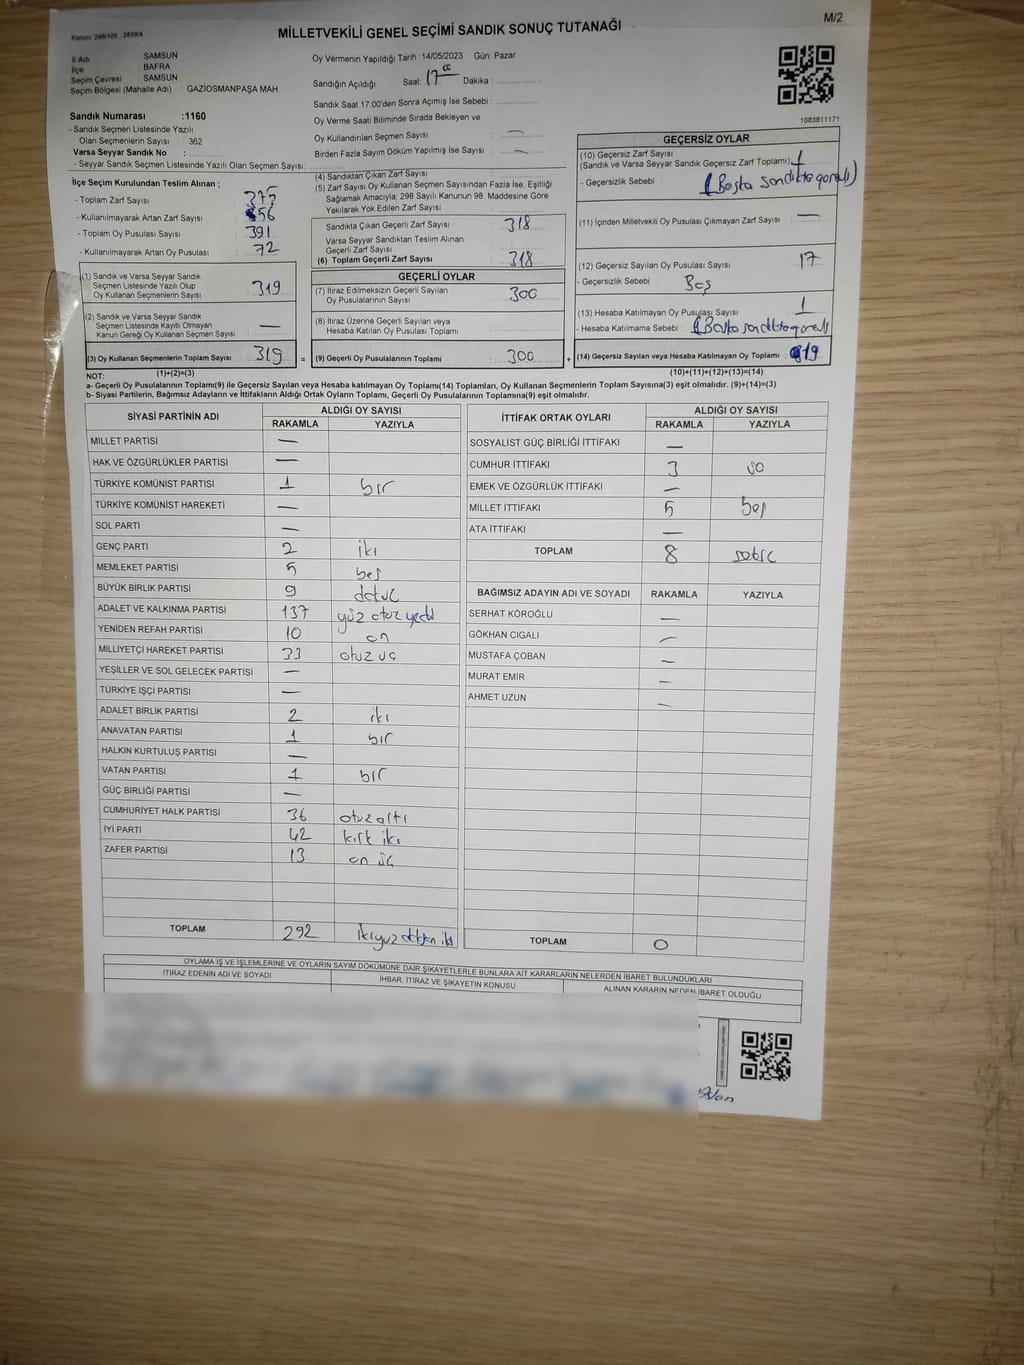 M/2
Kanun: 298/105 , 2839/4
MİLLETVEKİLİ GENEL SEÇİMİ SANDIK SONUÇ TUTANAĞI
İl Adı SAMSUN
İlçe BAFRA
Seçim Çevresi SAMSUN
Seçim Bölgesi (Mahalle Adı) : GAZİOSMANPAŞA MAH.
Sandık Numarası :1160
- Sandık Seçmen Listesinde Yazılı
Olan Seçmenlerin Sayısı : 362
Varsa Seyyar Sandık No :
- Seyyar Sandık Seçmen Listesinde Yazılı Olan Seçmen Sayısı:
Oy Vermenin Yapıldığı Tarih :14/05/2023 Gün: Pazar
Sandığın Açıldığı Saat: 17 00 Dakika :
Sandık Saat 17:00'den Sonra Açımış İse Sebebi :
Oy Verme Saati Bitiminde Sırada Bekleyen ve
Oy Kullandırılan Seçmen Sayısı : —
Birden Fazla Sayım Döküm Yapılmış İse Sayısı : —
1083811171
İlçe Seçim Kurulundan Teslim Alınan ;
- Toplam Zarf Sayısı : 375
- Kullanılmayarak Artan Zarf Sayısı : 56
- Toplam Oy Pusulası : 391
- Kullanılmayarak Artan Oy Pusulası : 72
(1) Sandık ve Varsa Seyyar Sandık
Seçmen Listesinde Yazılı Olup
Oy Kullanan Seçmenlerin Sayısı 319
(2) Sandık ve Varsa Seyyar Sandık
Seçmen Listesinde Kayıtlı Olmayan
Kanun Gereği Oy Kullanan Seçmen Sayısı : —
(3) Oy Kullanan Seçmenlerin Toplam Sayısı 319 =
(1)+(2)=(3)
(4) Sandıktan Çıkan Zarf Sayısı
(5) Zarf Sayısı Oy Kullanan Seçmen Sayısından Fazla İse, Eşitliği
Sağlamak Amacıyla; 298 Sayılı Kanunun 98. Maddesine Göre
Yakılarak Yok Edilen Zarf Sayısı
Sandıkta Çıkan Geçerli Zarf Sayısı 318
Varsa Seyyar Sandıktan Teslim Alınan
Geçerli Zarf Sayısı
(6) Toplam Geçerli Zarf Sayısı 318
GEÇERLİ OYLAR
(7) İtiraz Edilmeksizin Geçerli Sayılan
Oy Pusulalarının Sayısı : 300
(8) İtiraz Üzerine Geçerli Sayılan veya
Hesaba Katılan Oy Pusulası Toplamı
(9) Geçerli Oy Pusulalarının Toplamı : 300 +
GEÇERSİZ OYLAR
(10) Geçersiz Zarf Sayısı
(Sandık ve Varsa Seyyar Sandık Geçersiz Zarf Toplamı) : 1
- Geçersizlik Sebebi :
(11) İçinden Milletvekili Oy Pusulası Çıkmayan Zarf Sayısı : —
(12) Geçersiz Sayılan Oy Pusulası Sayısı : 17
- Geçersizlik Sebebi : Boş
(13) Hesaba Katılmayan Oy Pusulası Sayısı : 1
- Hesaba Katılmama Sebebi :
(14) Geçersiz Sayılan veya Hesaba Katılmayan Oy Toplamı : 19
(10)+(11)+(12)+(13)=(14)
NOT:
a- Geçerli Oy Pusulalarının Toplamı(9) ile Geçersiz Sayılan veya Hesaba katılmayan Oy Toplamı(14) Toplamları, Oy Kullanan Seçmenlerin Toplam Sayısına(3) eşit olmalıdır. (9)+(14)=(3)
b- Siyasi Partilerin, Bağımsız Adayların ve İttifakların Aldığı Ortak Oyların Toplamı, Geçerli Oy Pusulalarının Toplamına(9) eşit olmalıdır.
SİYASİ PARTİNİN ADI ALDIĞI OY SAYISI
RAKAMLA YAZIYLA
MİLLET PARTİSİ —
HAK VE ÖZGÜRLÜKLER PARTİSİ —
TÜRKİYE KOMÜNİST PARTİSİ 1 bir
TÜRKİYE KOMÜNİST HAREKETİ —
SOL PARTİ —
GENÇ PARTİ 2 iki
MEMLEKET PARTİSİ 5 beş
BÜYÜK BİRLİK PARTİSİ 9 dokuz
ADALET VE KALKINMA PARTİSİ 137 yüz otuz yedi
YENİDEN REFAH PARTİSİ 10 on
MİLLİYETÇİ HAREKET PARTİSİ 33 otuz üç
YEŞİLLER VE SOL GELECEK PARTİSİ —
TÜRKİYE İŞÇİ PARTİSİ —
ADALET BİRLİK PARTİSİ 2 iki
ANAVATAN PARTİSİ 1 bir
HALKIN KURTULUŞ PARTİSİ —
VATAN PARTİSİ 1 bir
GÜÇ BİRLİĞİ PARTİSİ —
CUMHURİYET HALK PARTİSİ 36 otuz altı
İYİ PARTİ 42 kırk iki
ZAFER PARTİSİ 13 on üç
TOPLAM 292 ikiyüz doksan iki
İTTİFAK ORTAK OYLARI ALDIĞI OY SAYISI
RAKAMLA YAZIYLA
SOSYALİST GÜÇ BİRLİĞİ İTTİFAKI —
CUMHUR İTTİFAKI 3 üç
EMEK VE ÖZGÜRLÜK İTTİFAKI —
MİLLET İTTİFAKI 5 beş
ATA İTTİFAKI —
TOPLAM 8 sekiz
BAĞIMSIZ ADAYIN ADI VE SOYADI RAKAMLA YAZIYLA
SERHAT KÖROĞLU —
GÖKHAN CIGALI —
MUSTAFA ÇOBAN —
MURAT EMİR —
AHMET UZUN —
TOPLAM 0
OYLAMA İŞ VE İŞLEMLERİNE VE OYLARIN SAYIM DÖKÜMÜNE DAİR ŞİKAYETLERLE BUNLARA AİT KARARLARIN NELERDEN İBARET BULUNDUKLARI
İTİRAZ EDENİN ADI VE SOYADI İHBAR, İTİRAZ VE ŞİKAYETİN KONUSU ALINAN KARARIN NEDEN İBARET OLDUĞU